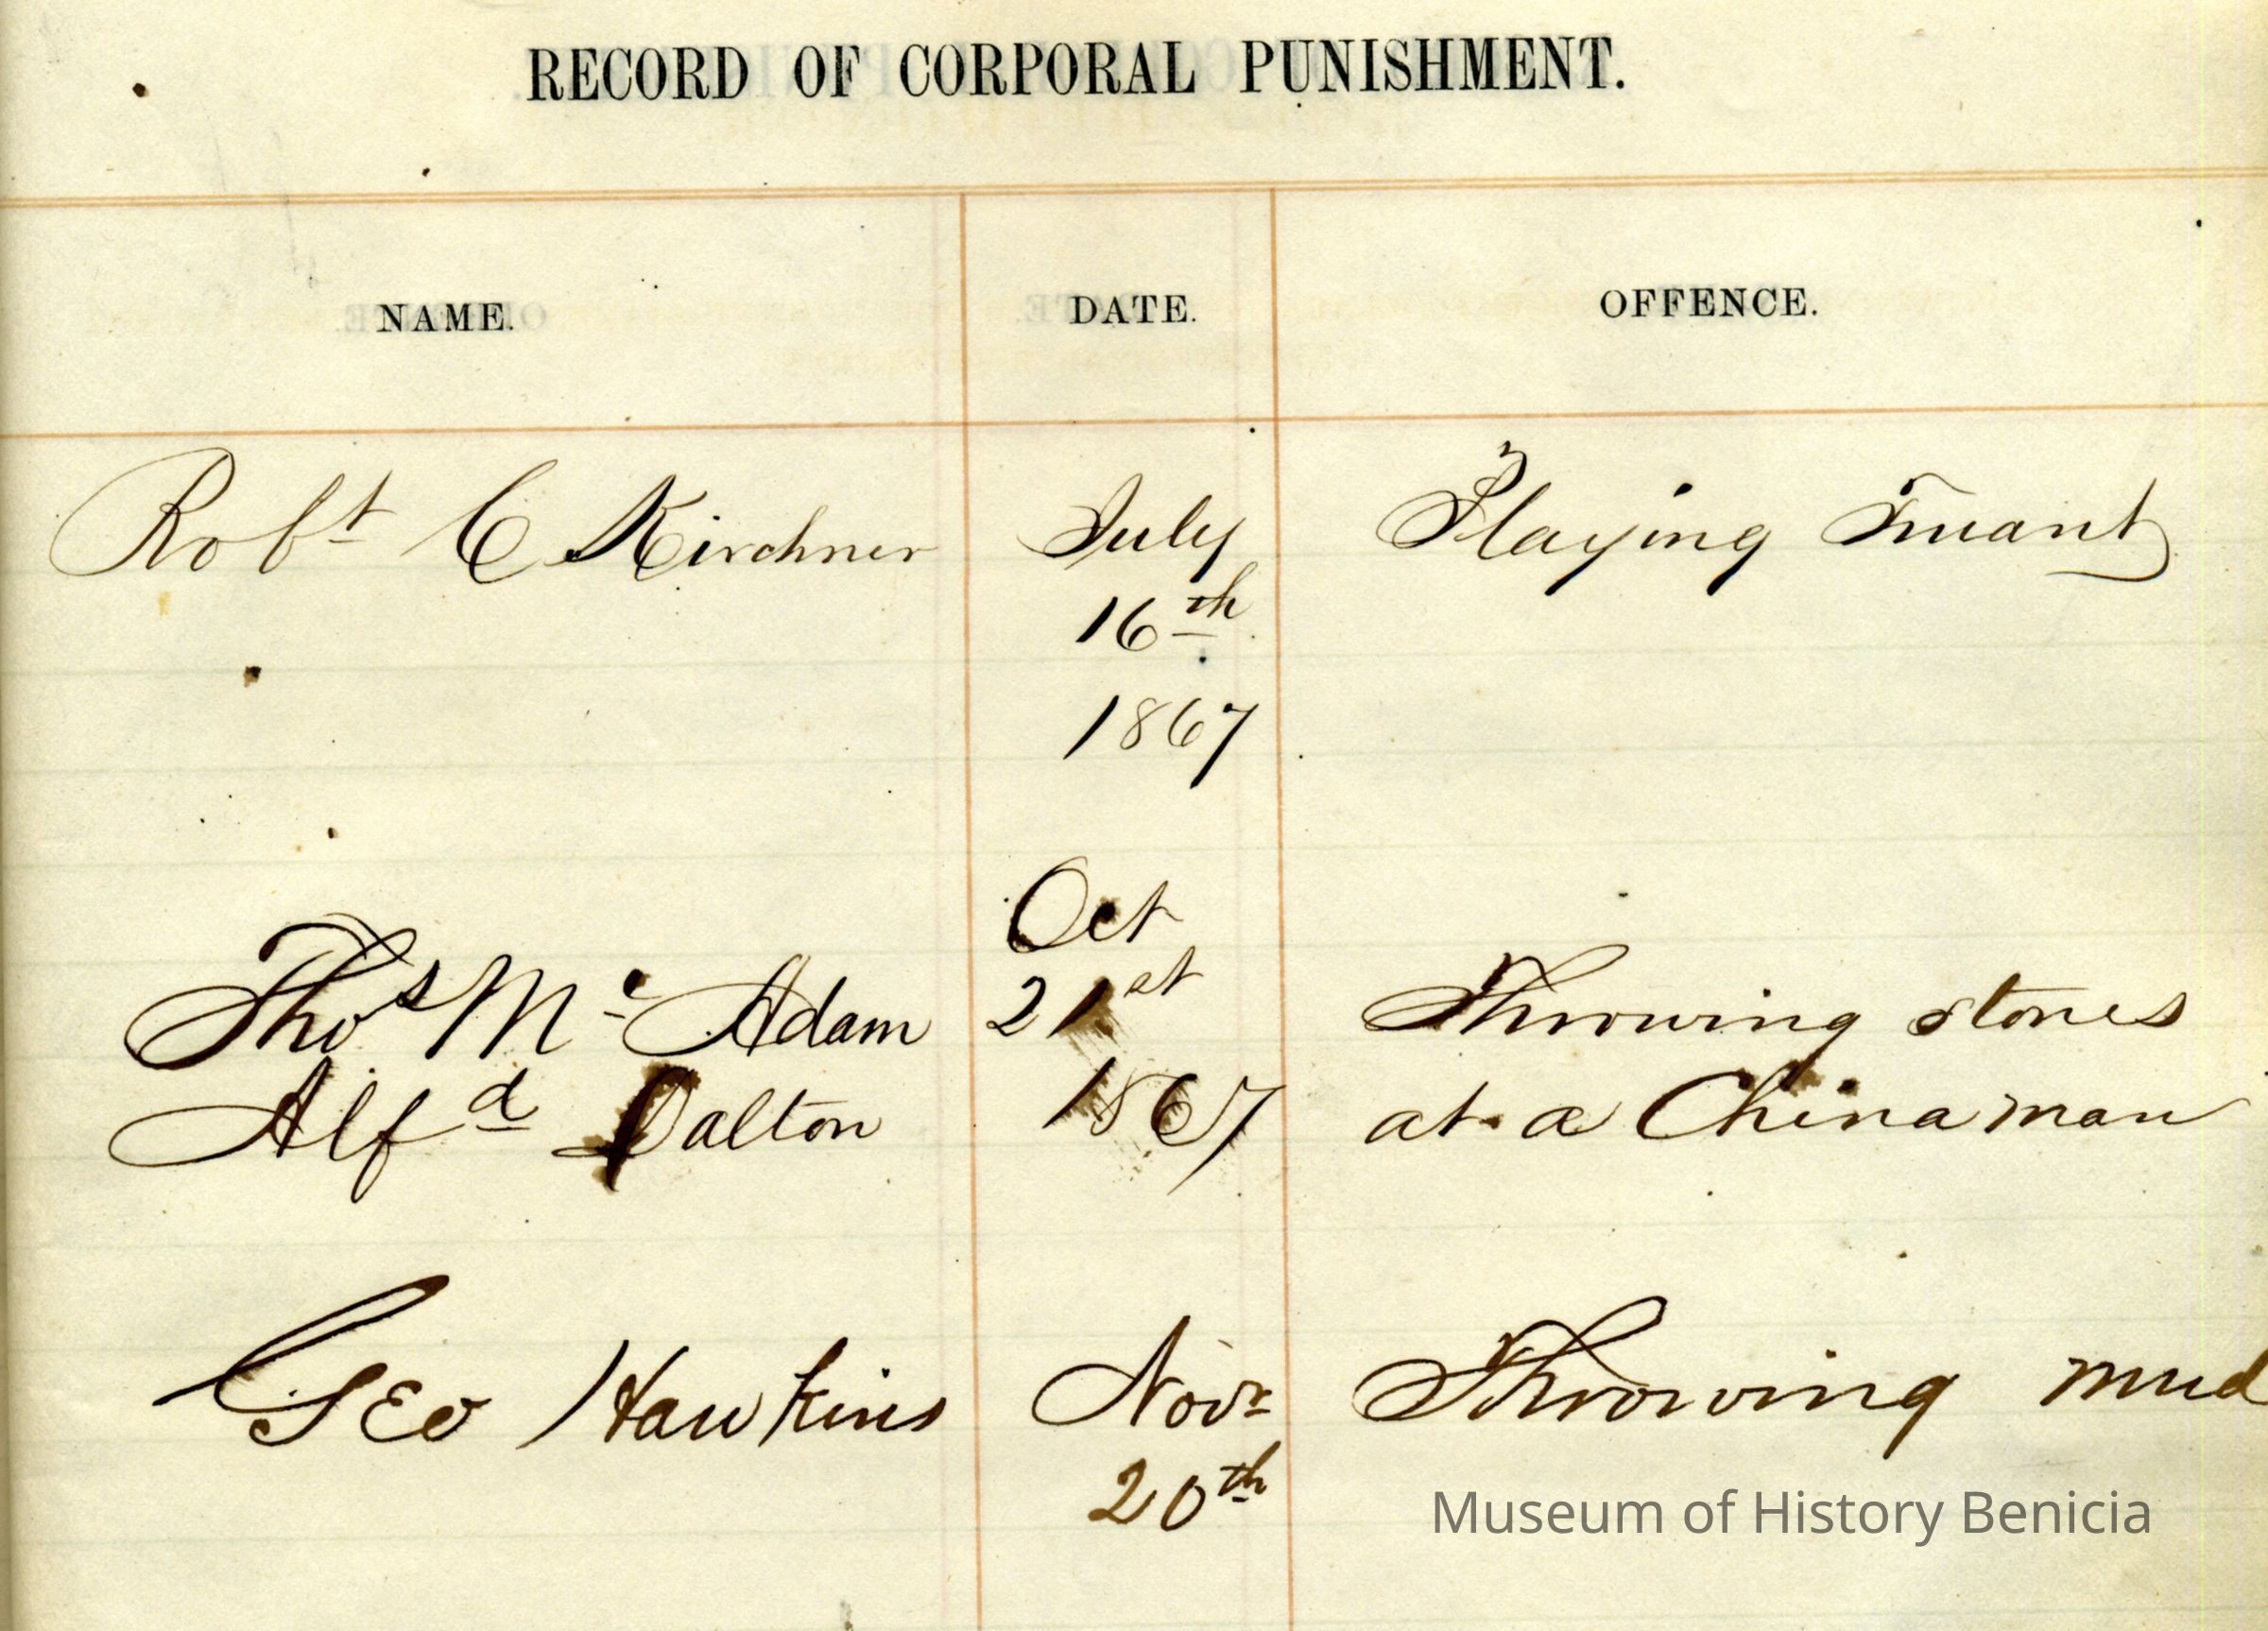 RECORD OF CORPORAL PUNISHMENT.
NAME. DATE. OFFENCE.
Robt C Kirchner July Playing Truant
16th
1867
Oct
Thos Mc Adam 21st Throwing stones
Alfd Dalton 1867 at a Chinaman
Geo Hawkins Novr Throwing mud
20th
Museum of History Benicia